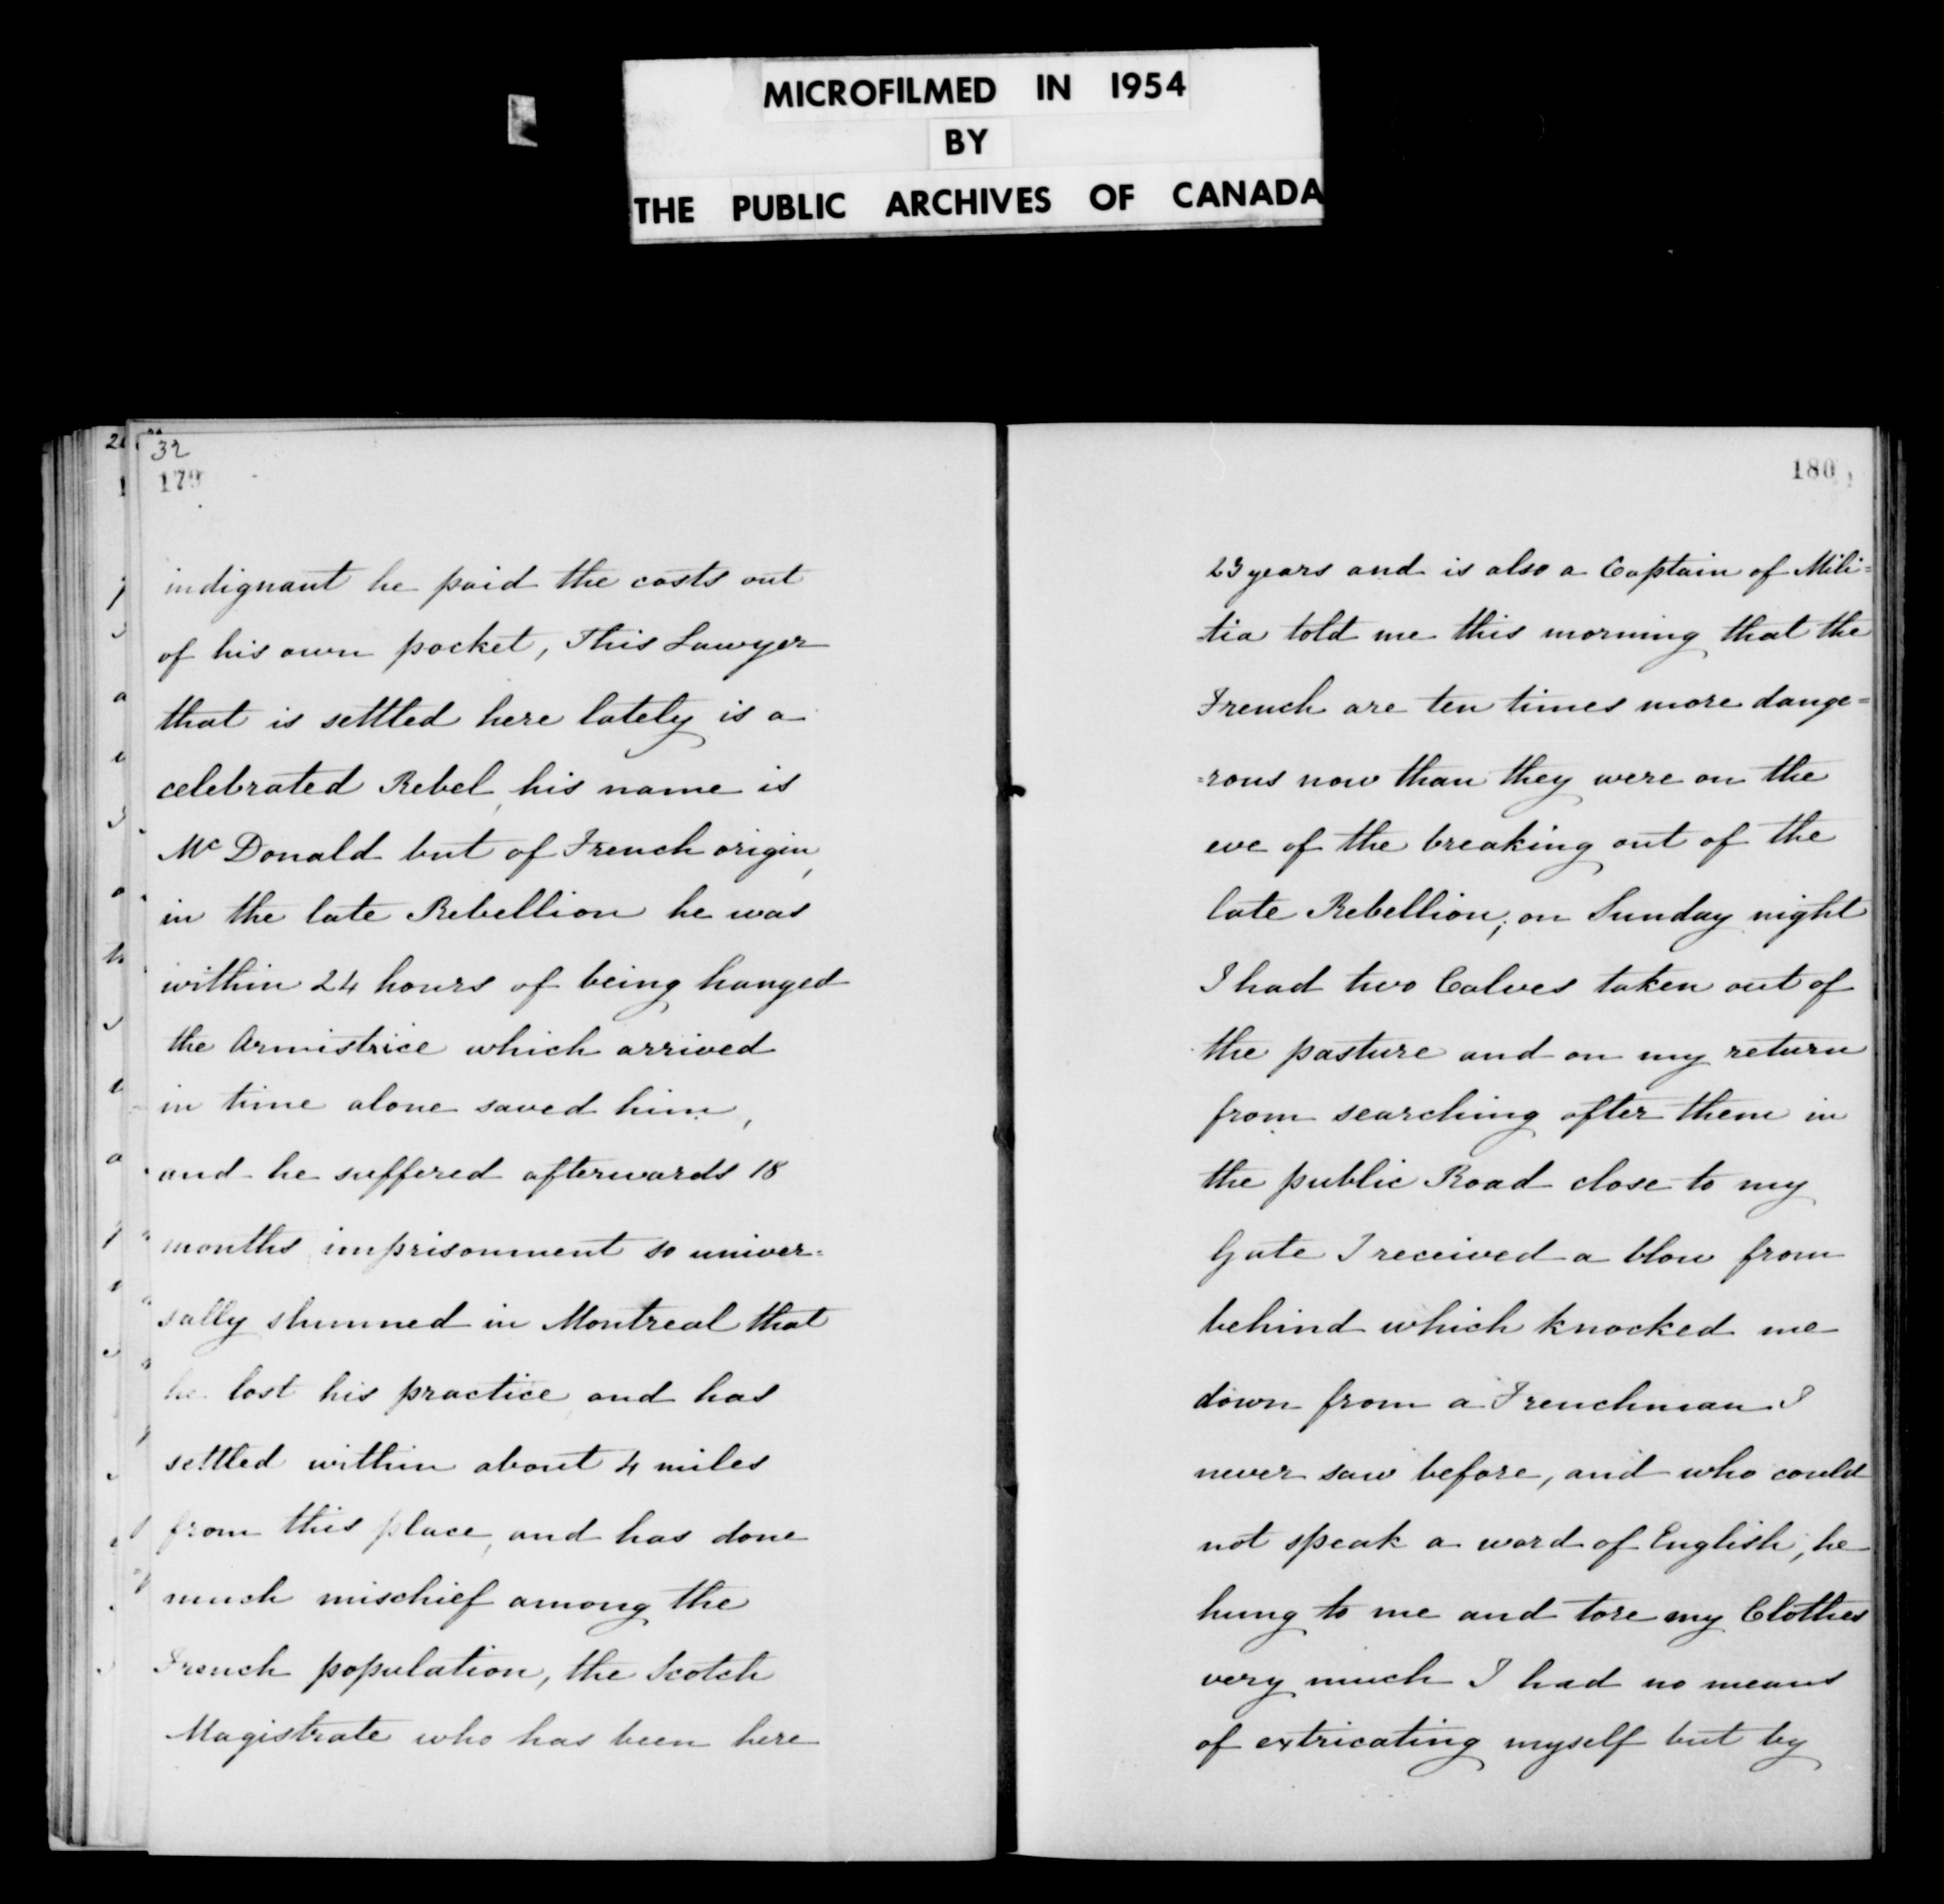 MICROFILMED IN 1954
BY
THE PUBLIC ARCHIVES OF CANADA
32
179
indignant he paid the costs out
of his own pocket, This Lawyer
that is settled here lately is a
celebrated Rebel, his name is
McDonald but of French origin,
in the late Rebellion he was
within 24 hours of being hanged
the Armistrice which arrived
in time alone saved him,
and he suffered afterwards 18
months imprisonment so univer=
sally shunned in Montreal that
he lost his practice and has
settled within about 4 miles
from this place, and has done
much mischief among the
French population, the Scotch
Magistrate who has been here
180
23 years and is also a Captain of Mili=
tia told me this morning that the
French are ten times more dange=
=rous now than they were on the
eve of the breaking out of the
late Rebellion; on Sunday night
I had two Calves taken out of
the pasture and on my return
from searching after them in
the public Road close to my
Gate I received a blow from
behind which knocked me
down from a Frenchman I
never saw before, and who could
not speak a word of English, he
hung to me and tore my Clothes
very much I had no means
of extricating myself but by